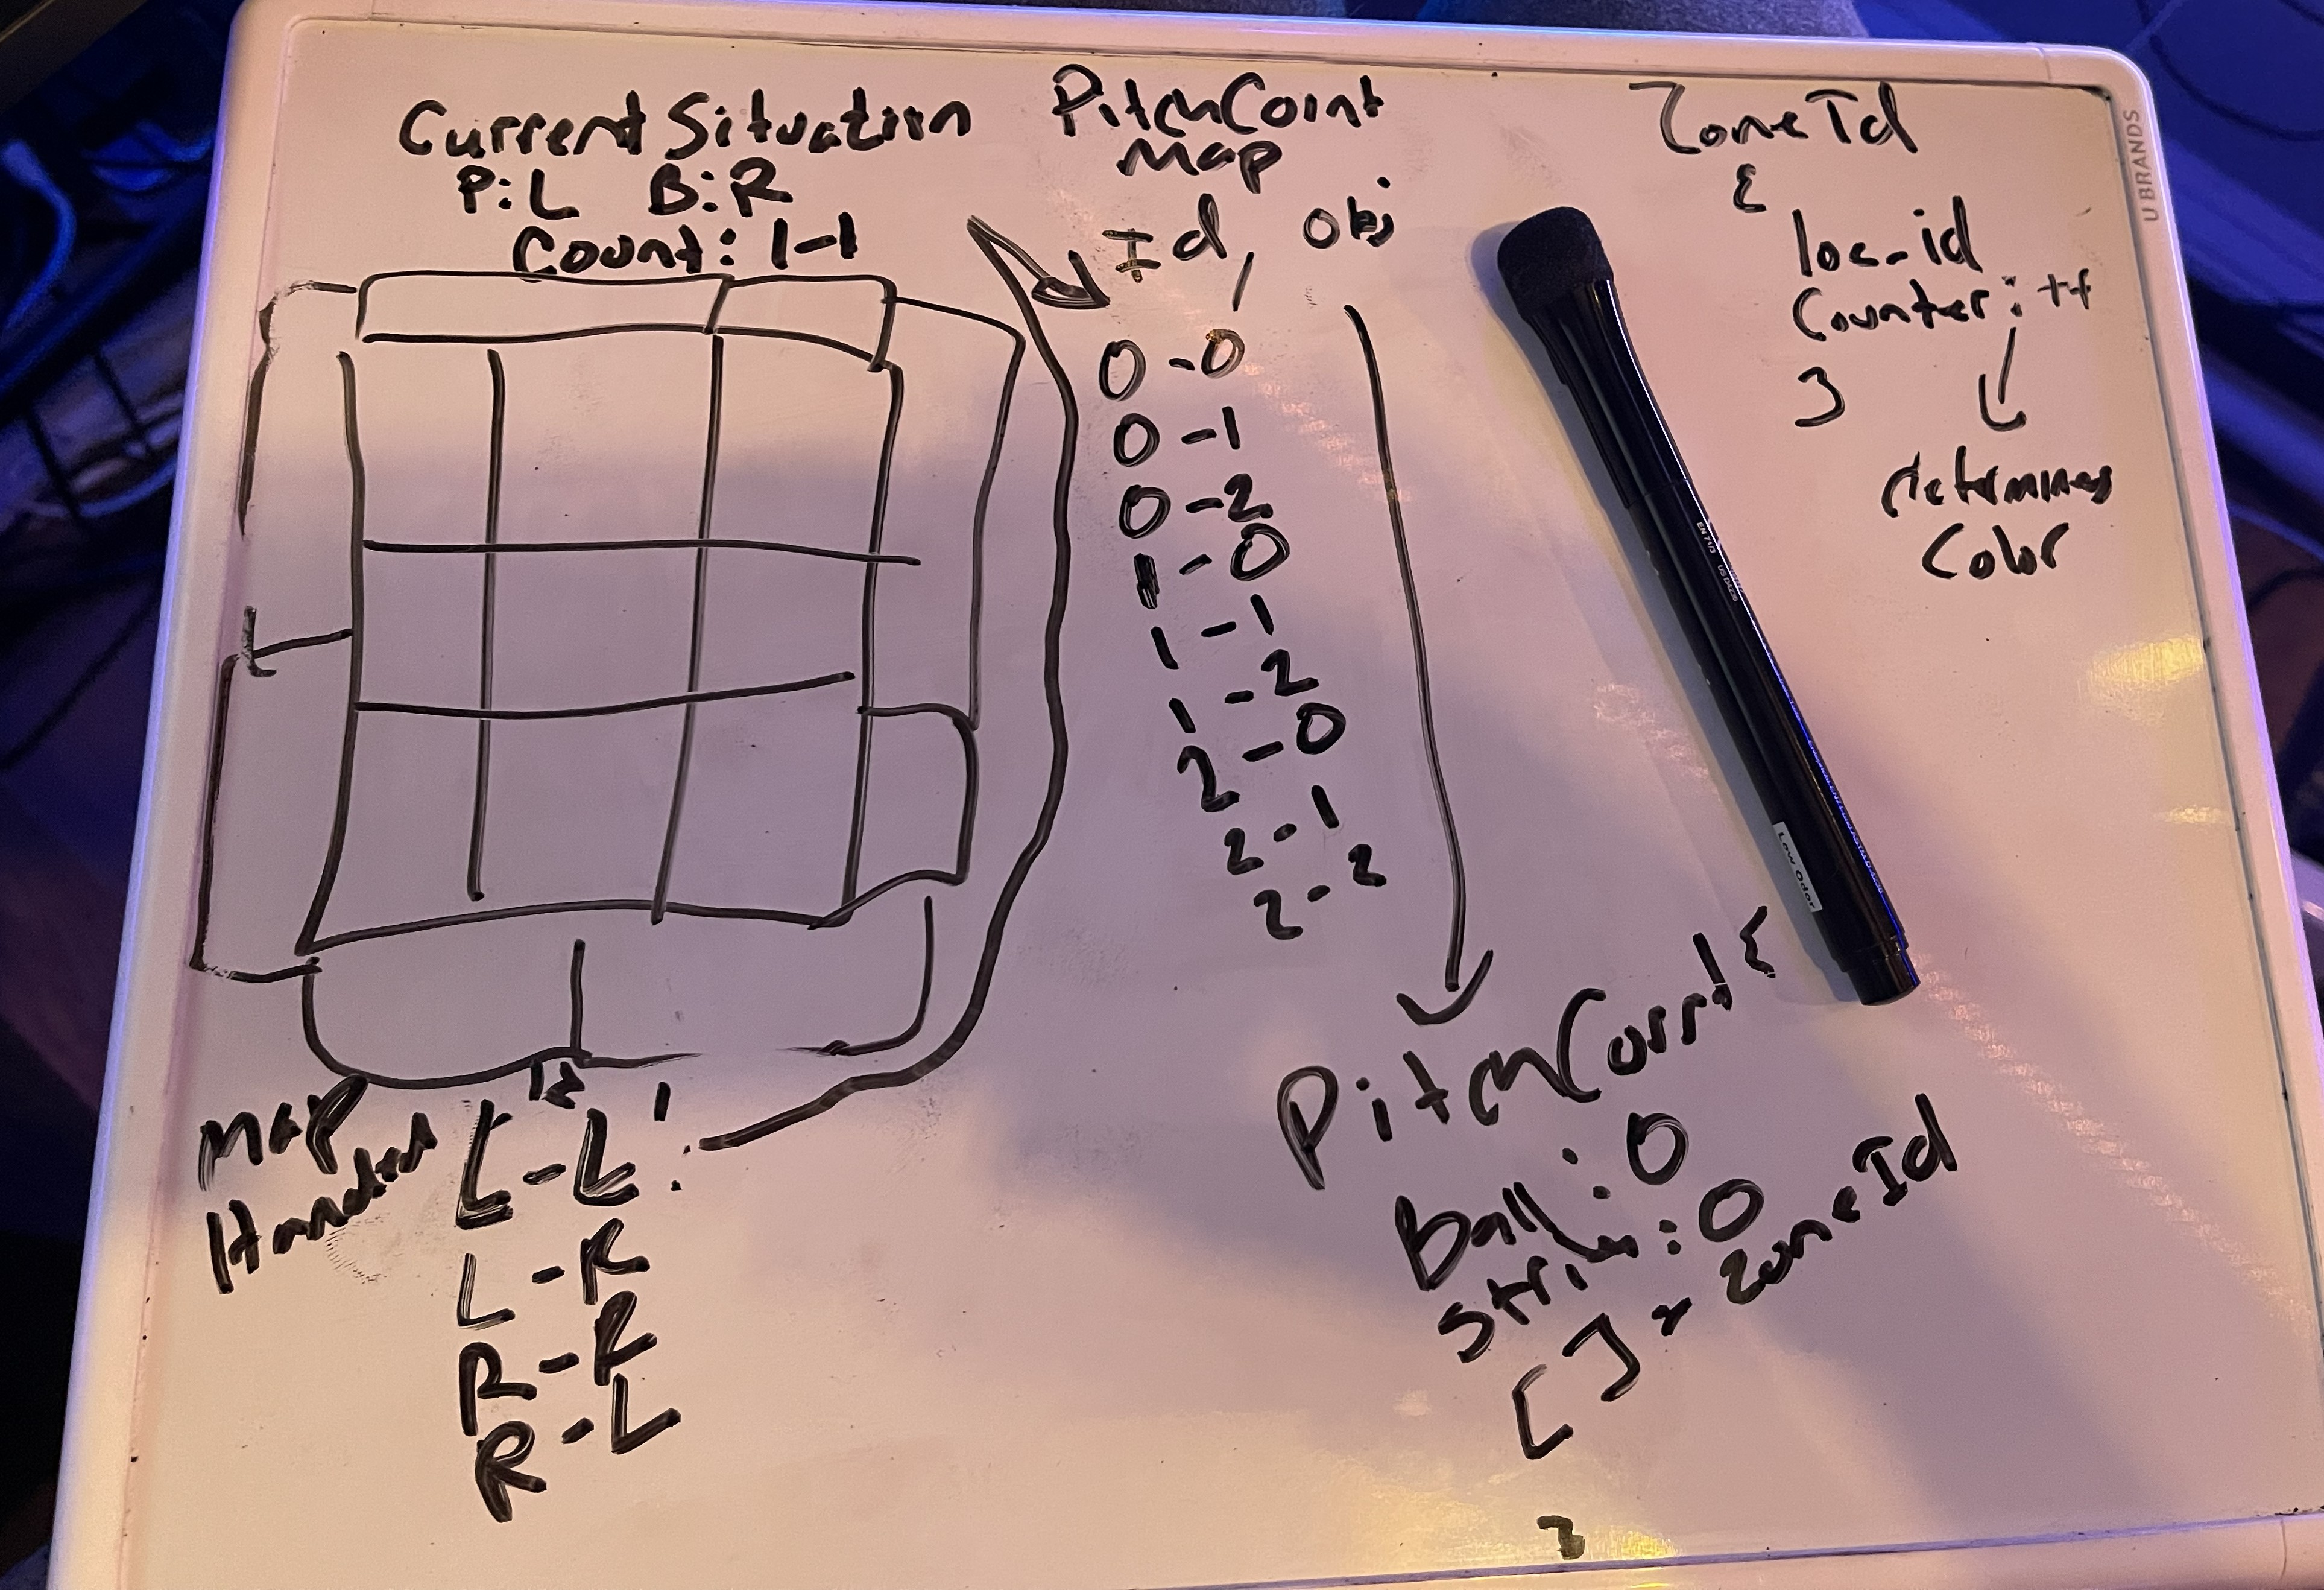 Current Situation
P: L B: R
Count: 1-1
PitchCount
Map
Id, Obj
0-0
0-1
0-2
1-0
1-1
1-2
2-0
2-1
2-2
ZoneId
{
loc_id
Counter: ++
}
determines
Color
PitchCount {
Ball: 0
Strike: 0
[] ZoneId
}
Map
Id
L-L :
L-R
R-R
R-L
U BRANDS
EN 71/3
Low Odor